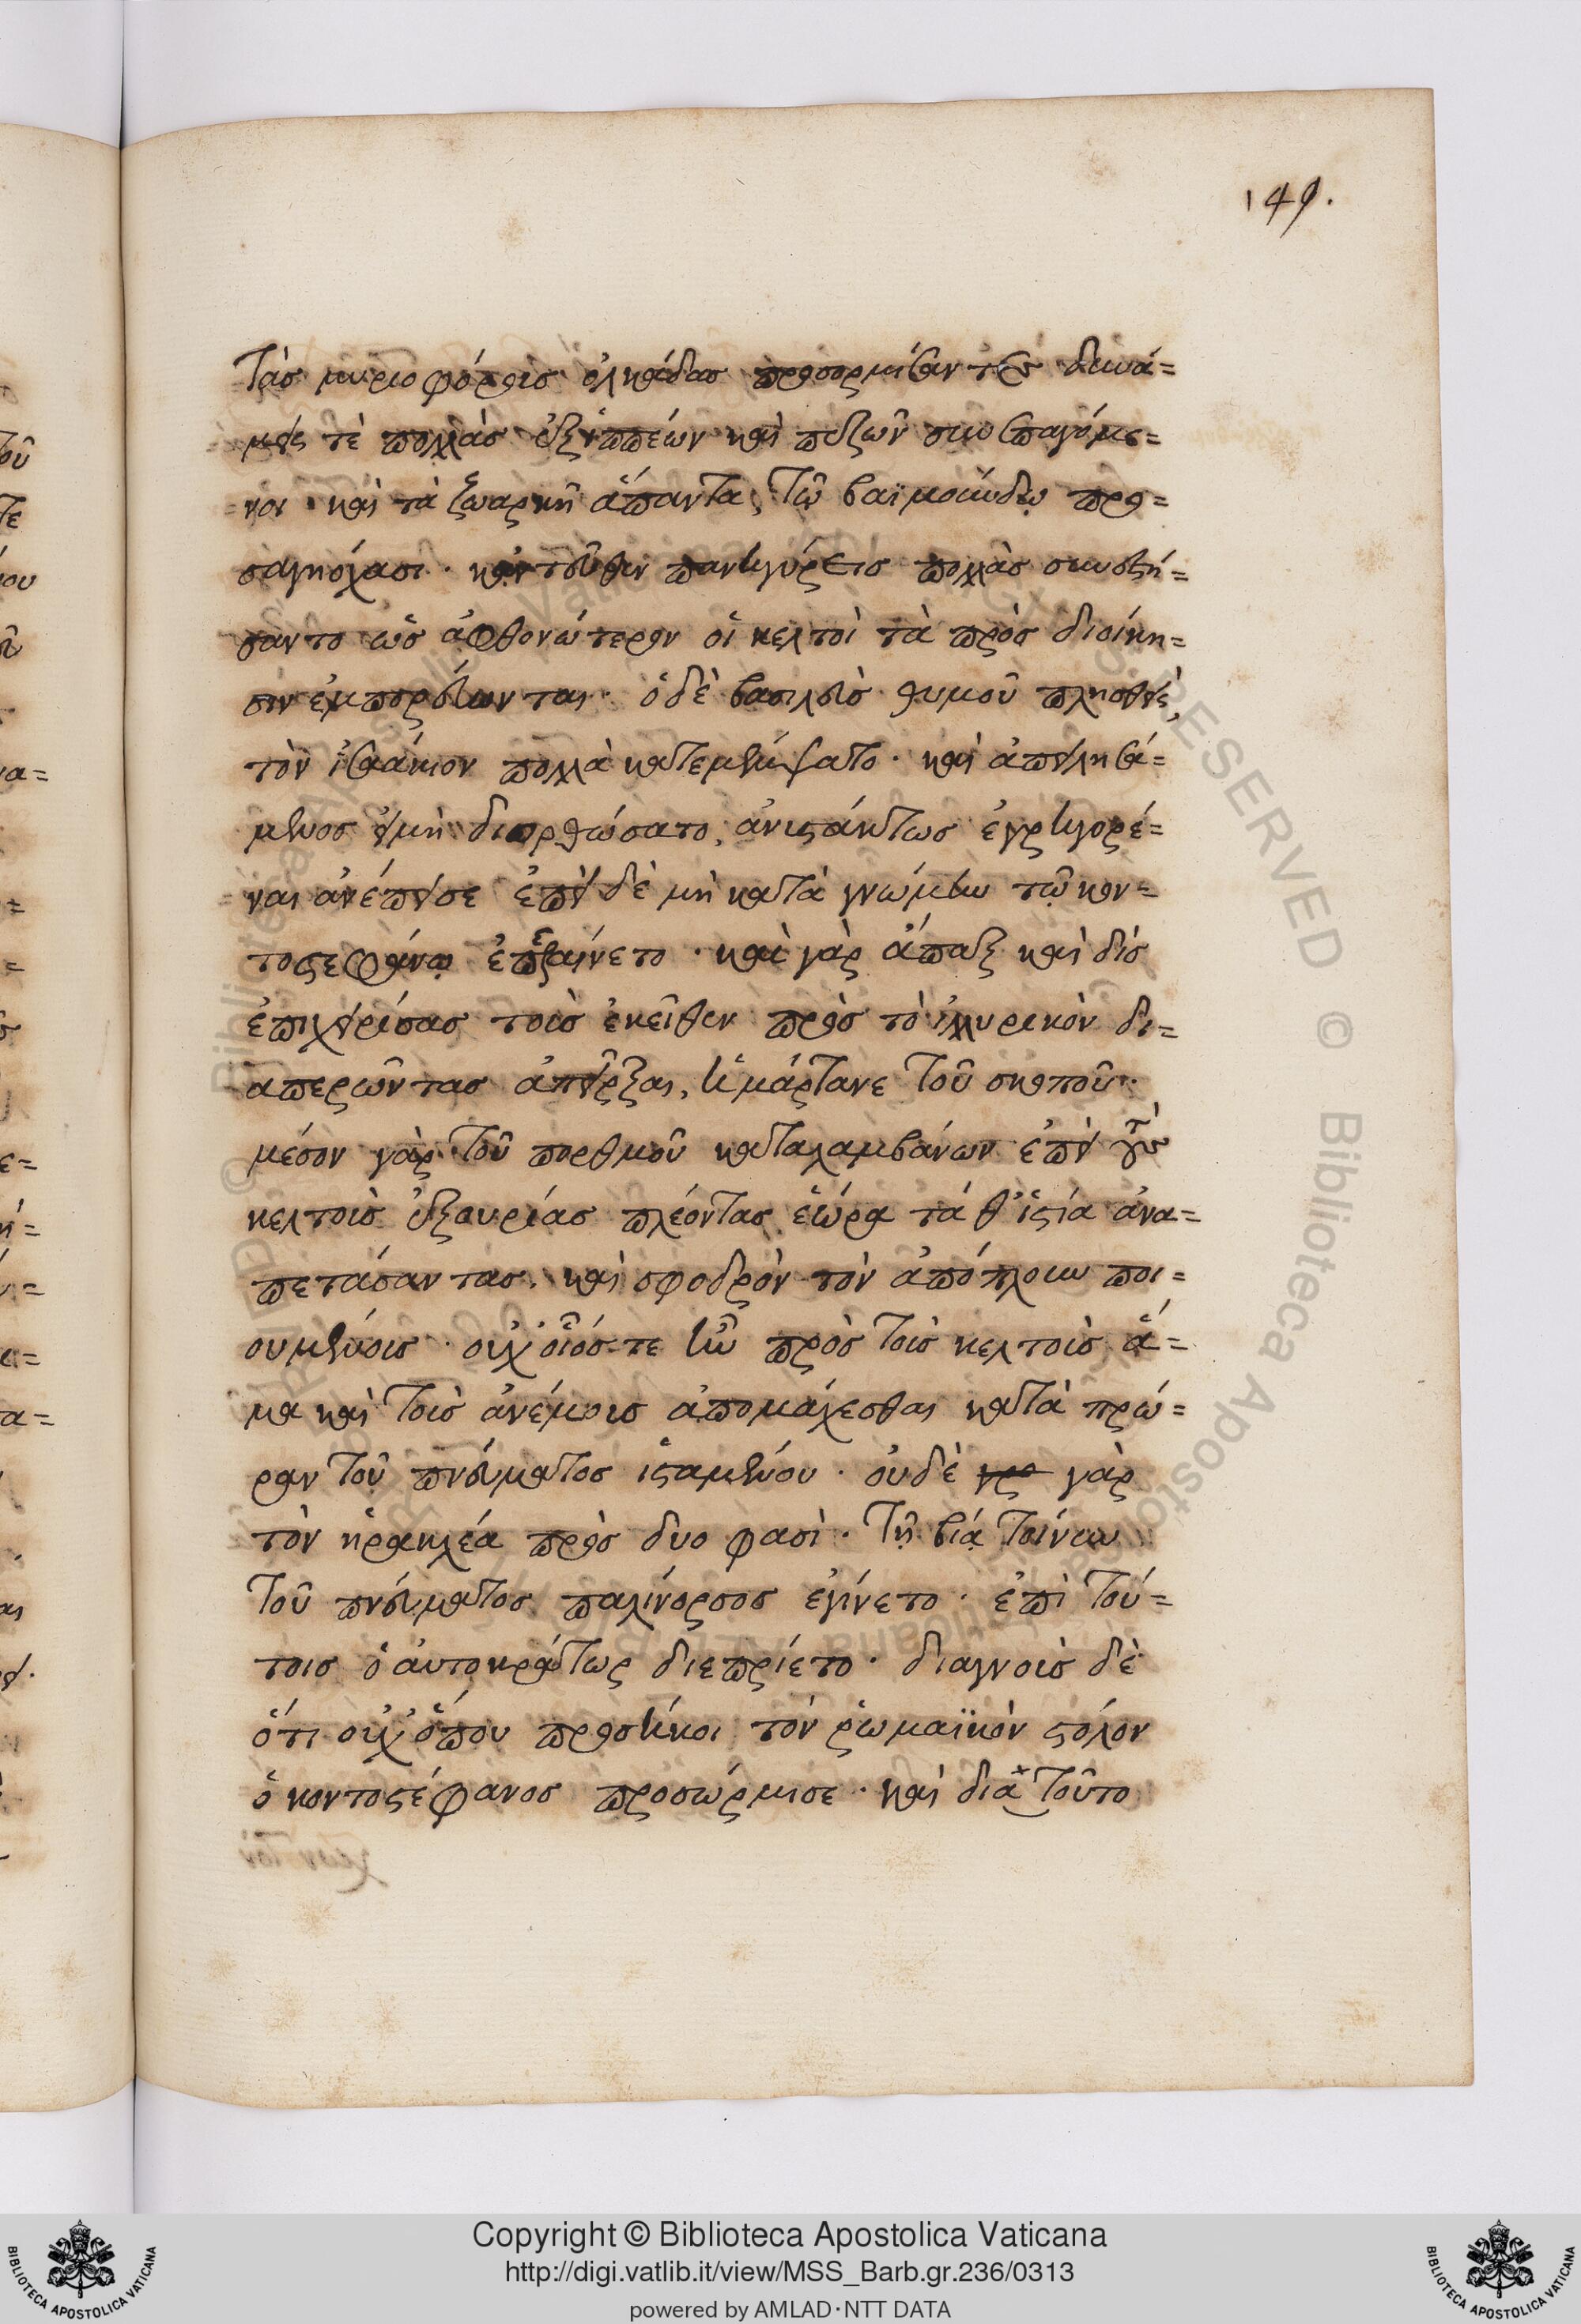 149.
τὰς μυριοφόρους ὁλκάδας προσορμίσαντες δυνά=
μεις τὲ πολλὰς ἐξ ἱππέων καὶ πεζῶν συνεπαγόμε=
νοι· καὶ τὰ ζωαρκῆ ἅπαντα, τῷ βαϊμούνδῳ προ=
σαγηόχασι· κἀντεῦθεν πανηγύρεις πολλὰς συνεστή=
σαντο ὡς ἀφθονώτερον οἱ κελτοὶ τὰ πρὸς διοίκη=
σιν ἐμπορεύωνται· ὁ δὲ βασιλεὺς θυμοῦ πλησθεὶς,
τὸν ἰσαάκιον πολλὰ κατεμέμψατο· καὶ ἀπειλησά=
μενος εἰ μὴ διορθώσατο, ἀνιστάκτως ἐγρηγορέ=
ναι ἀνέπεισε ἐπεὶ δὲ μὴ κατὰ γνώμην τῷ κον=
τοστεφάνῳ ἐπεξαίνετο· καὶ γὰρ ἅπαξ καὶ δὶς
ἐπιχειρίσας τοὺς ἐκεῖθεν πρὸς τὸ ἰλλυρικὸν δι=
απερῶντας ἀπεῖρξαι, ἡμάρτανε τοῦ σκοποῦ·
μέσον γὰρ τοῦ πορθμοῦ καταλαμβάνων ἐπεὶ τοὺς
κελτοὺς ἐξ αὐρίας πλέοντας ἑώρα τά θ' ἱστία ἀνα=
πετάσαντας· καὶ σφοδρὸν τὸν ἀπόπλουν ποι=
ουμένους· οὐχ οἷός τε ἦν πρὸς τοὺς κελτοὺς ἅ=
μα καὶ τοὺς ἀνέμους ἀπομάχεσθαι κατὰ πρώ=
ραν τοῦ πνεύματος ἱσταμένου· οὐδὲ γὰρ
τὸν ἡρακλέα πρὸς δυο φασὶ· τῇ βίᾳ τοίνυν
τοῦ πνεύματος παλίνορσος ἐγίνετο· ἐπὶ τού=
τοις ὁ αὐτοκράτωρ διεπρίετο· διαγνοὺς δὲ
ὅτι οὐχ ὅπου προσήκοι τὸν ῥωμαϊκὸν στόλον
ὁ κοντοστέφανος προσώρμισε· καὶ διὰ τοῦτο
Copyright © Biblioteca Apostolica Vaticana
http://digi.vatlib.it/view/MSS_Barb.gr.236/0313
powered by AMLAD·NTT DATA